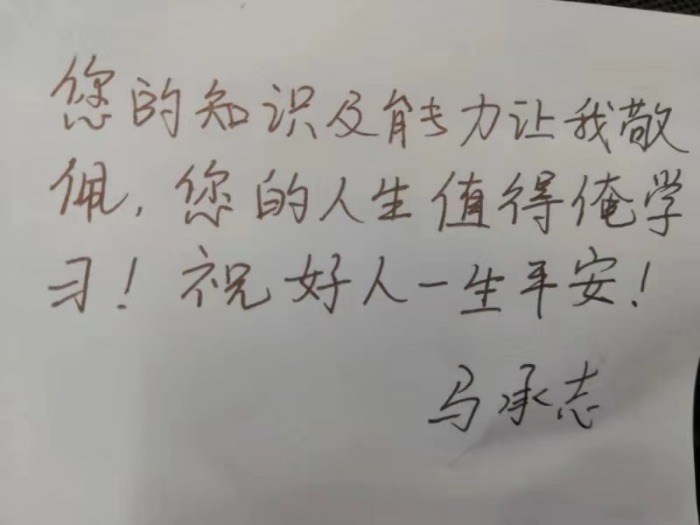 您的知识及能力让我敬
佩，您的人生值得俺学
习！祝好人一生平安！
马承志